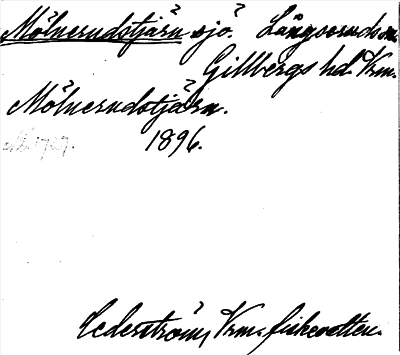 Mölnerudstjärn sjö. Långseruds sn.
Gillbergs hd. Vrm.
Mölnerudstjärn.
1896.
Cederström, Vrm. fiskevatten.